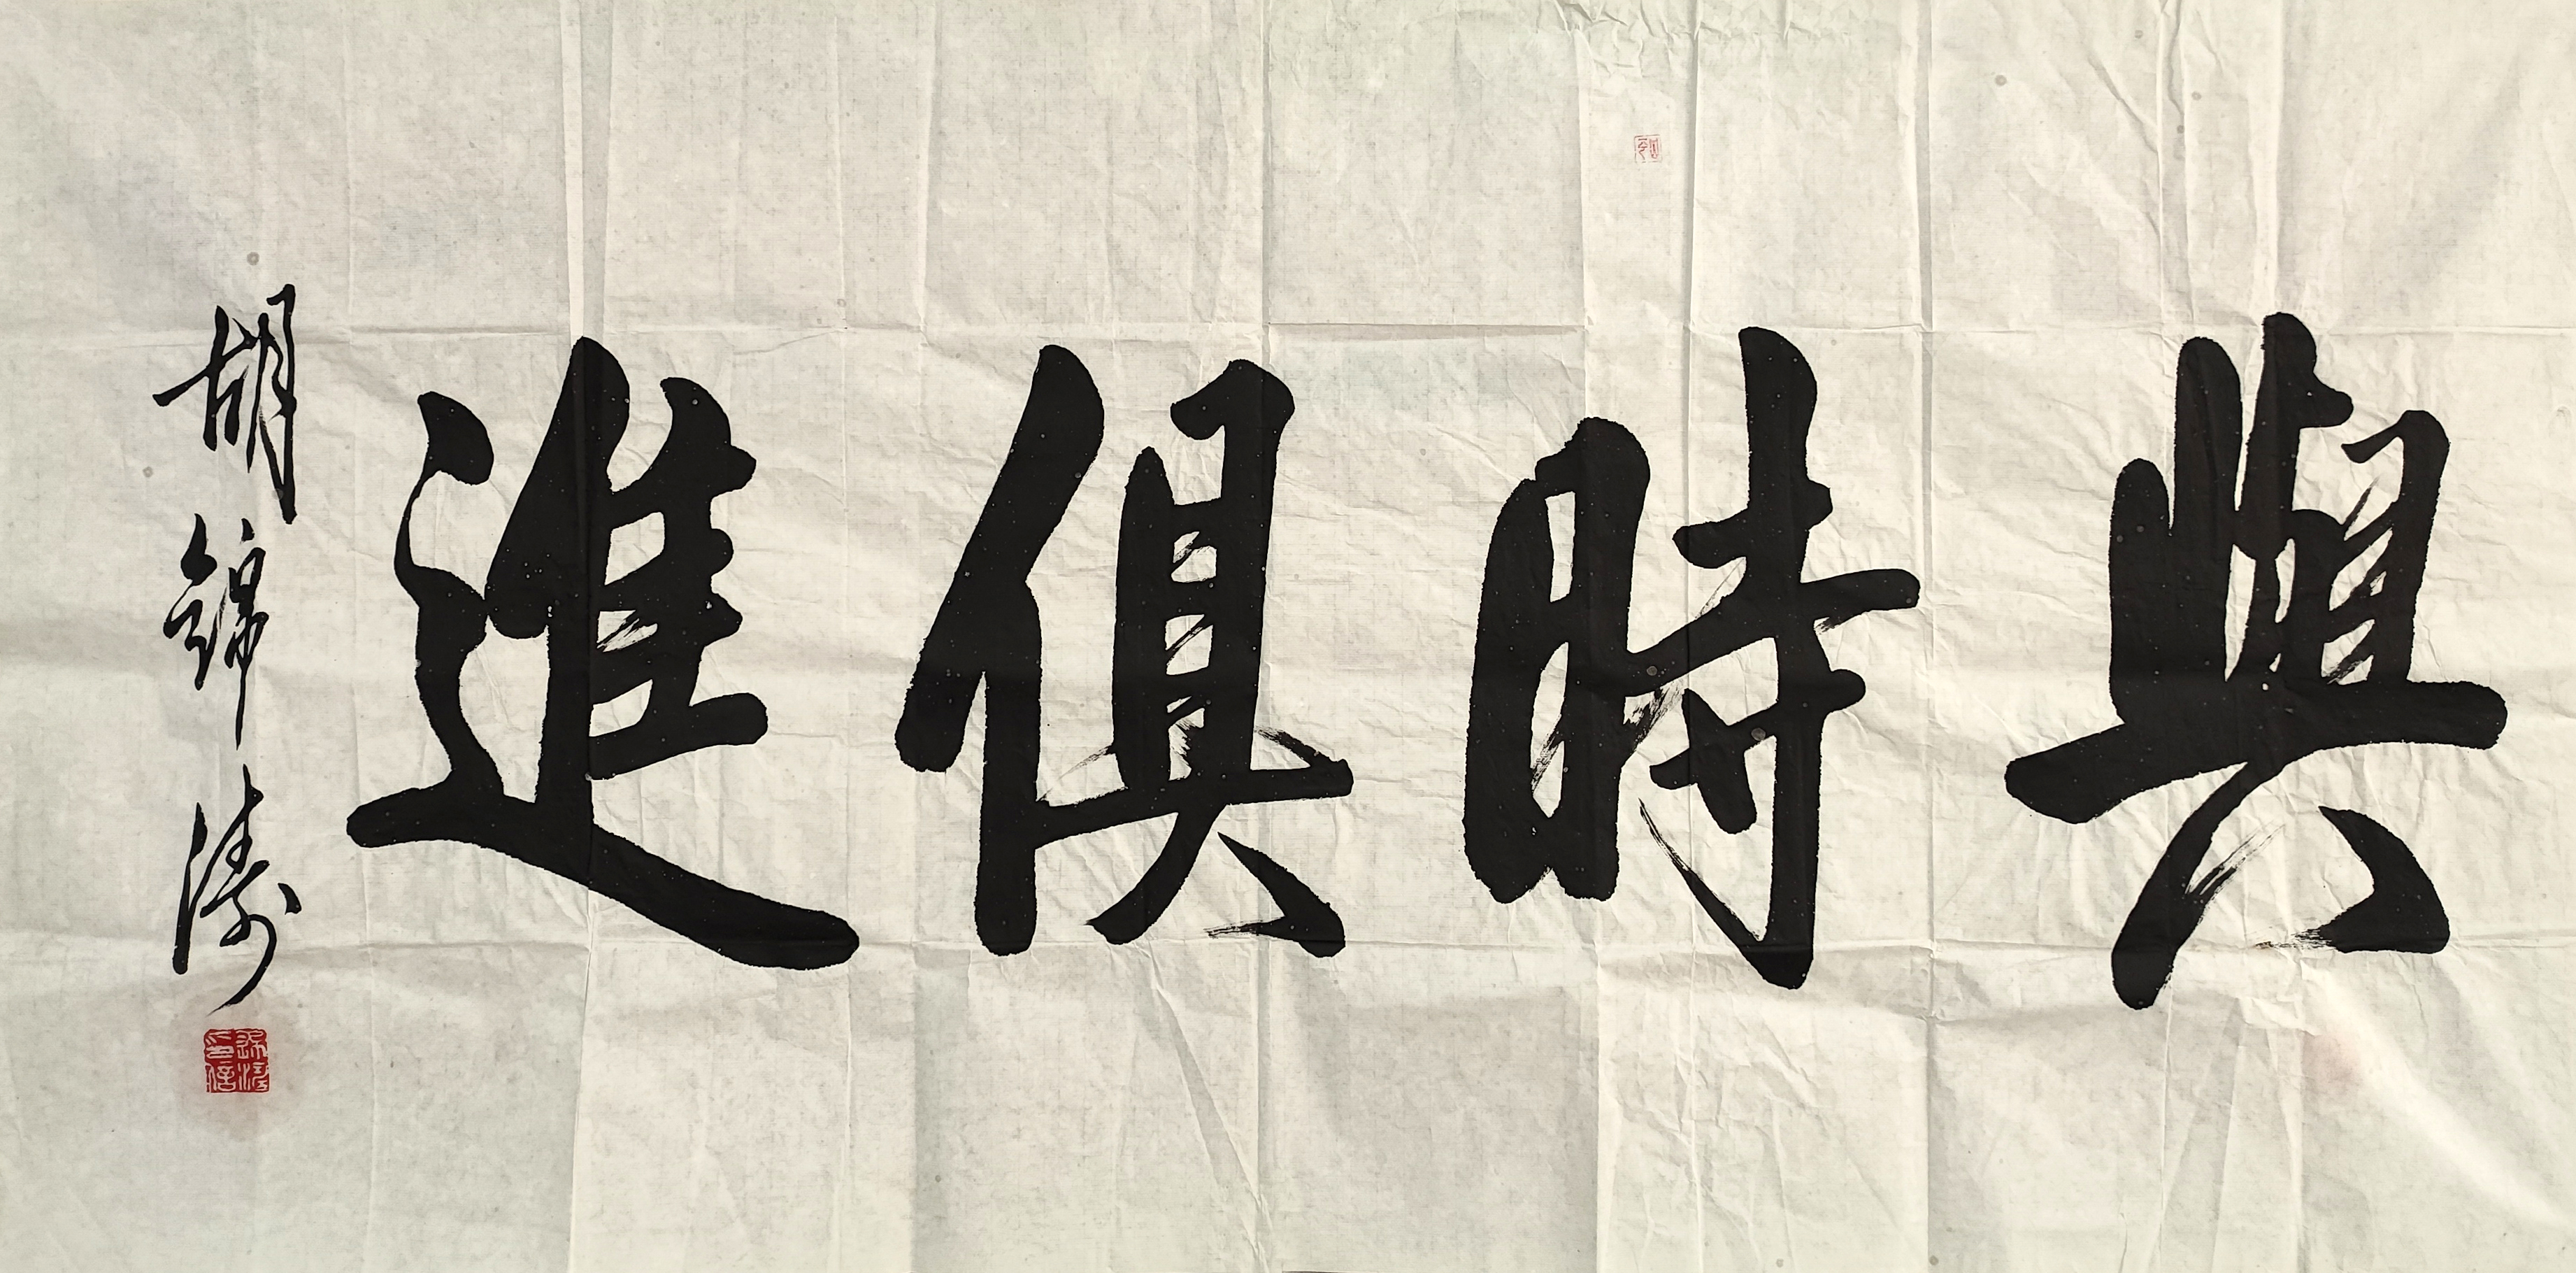 與時俱進
胡錦濤